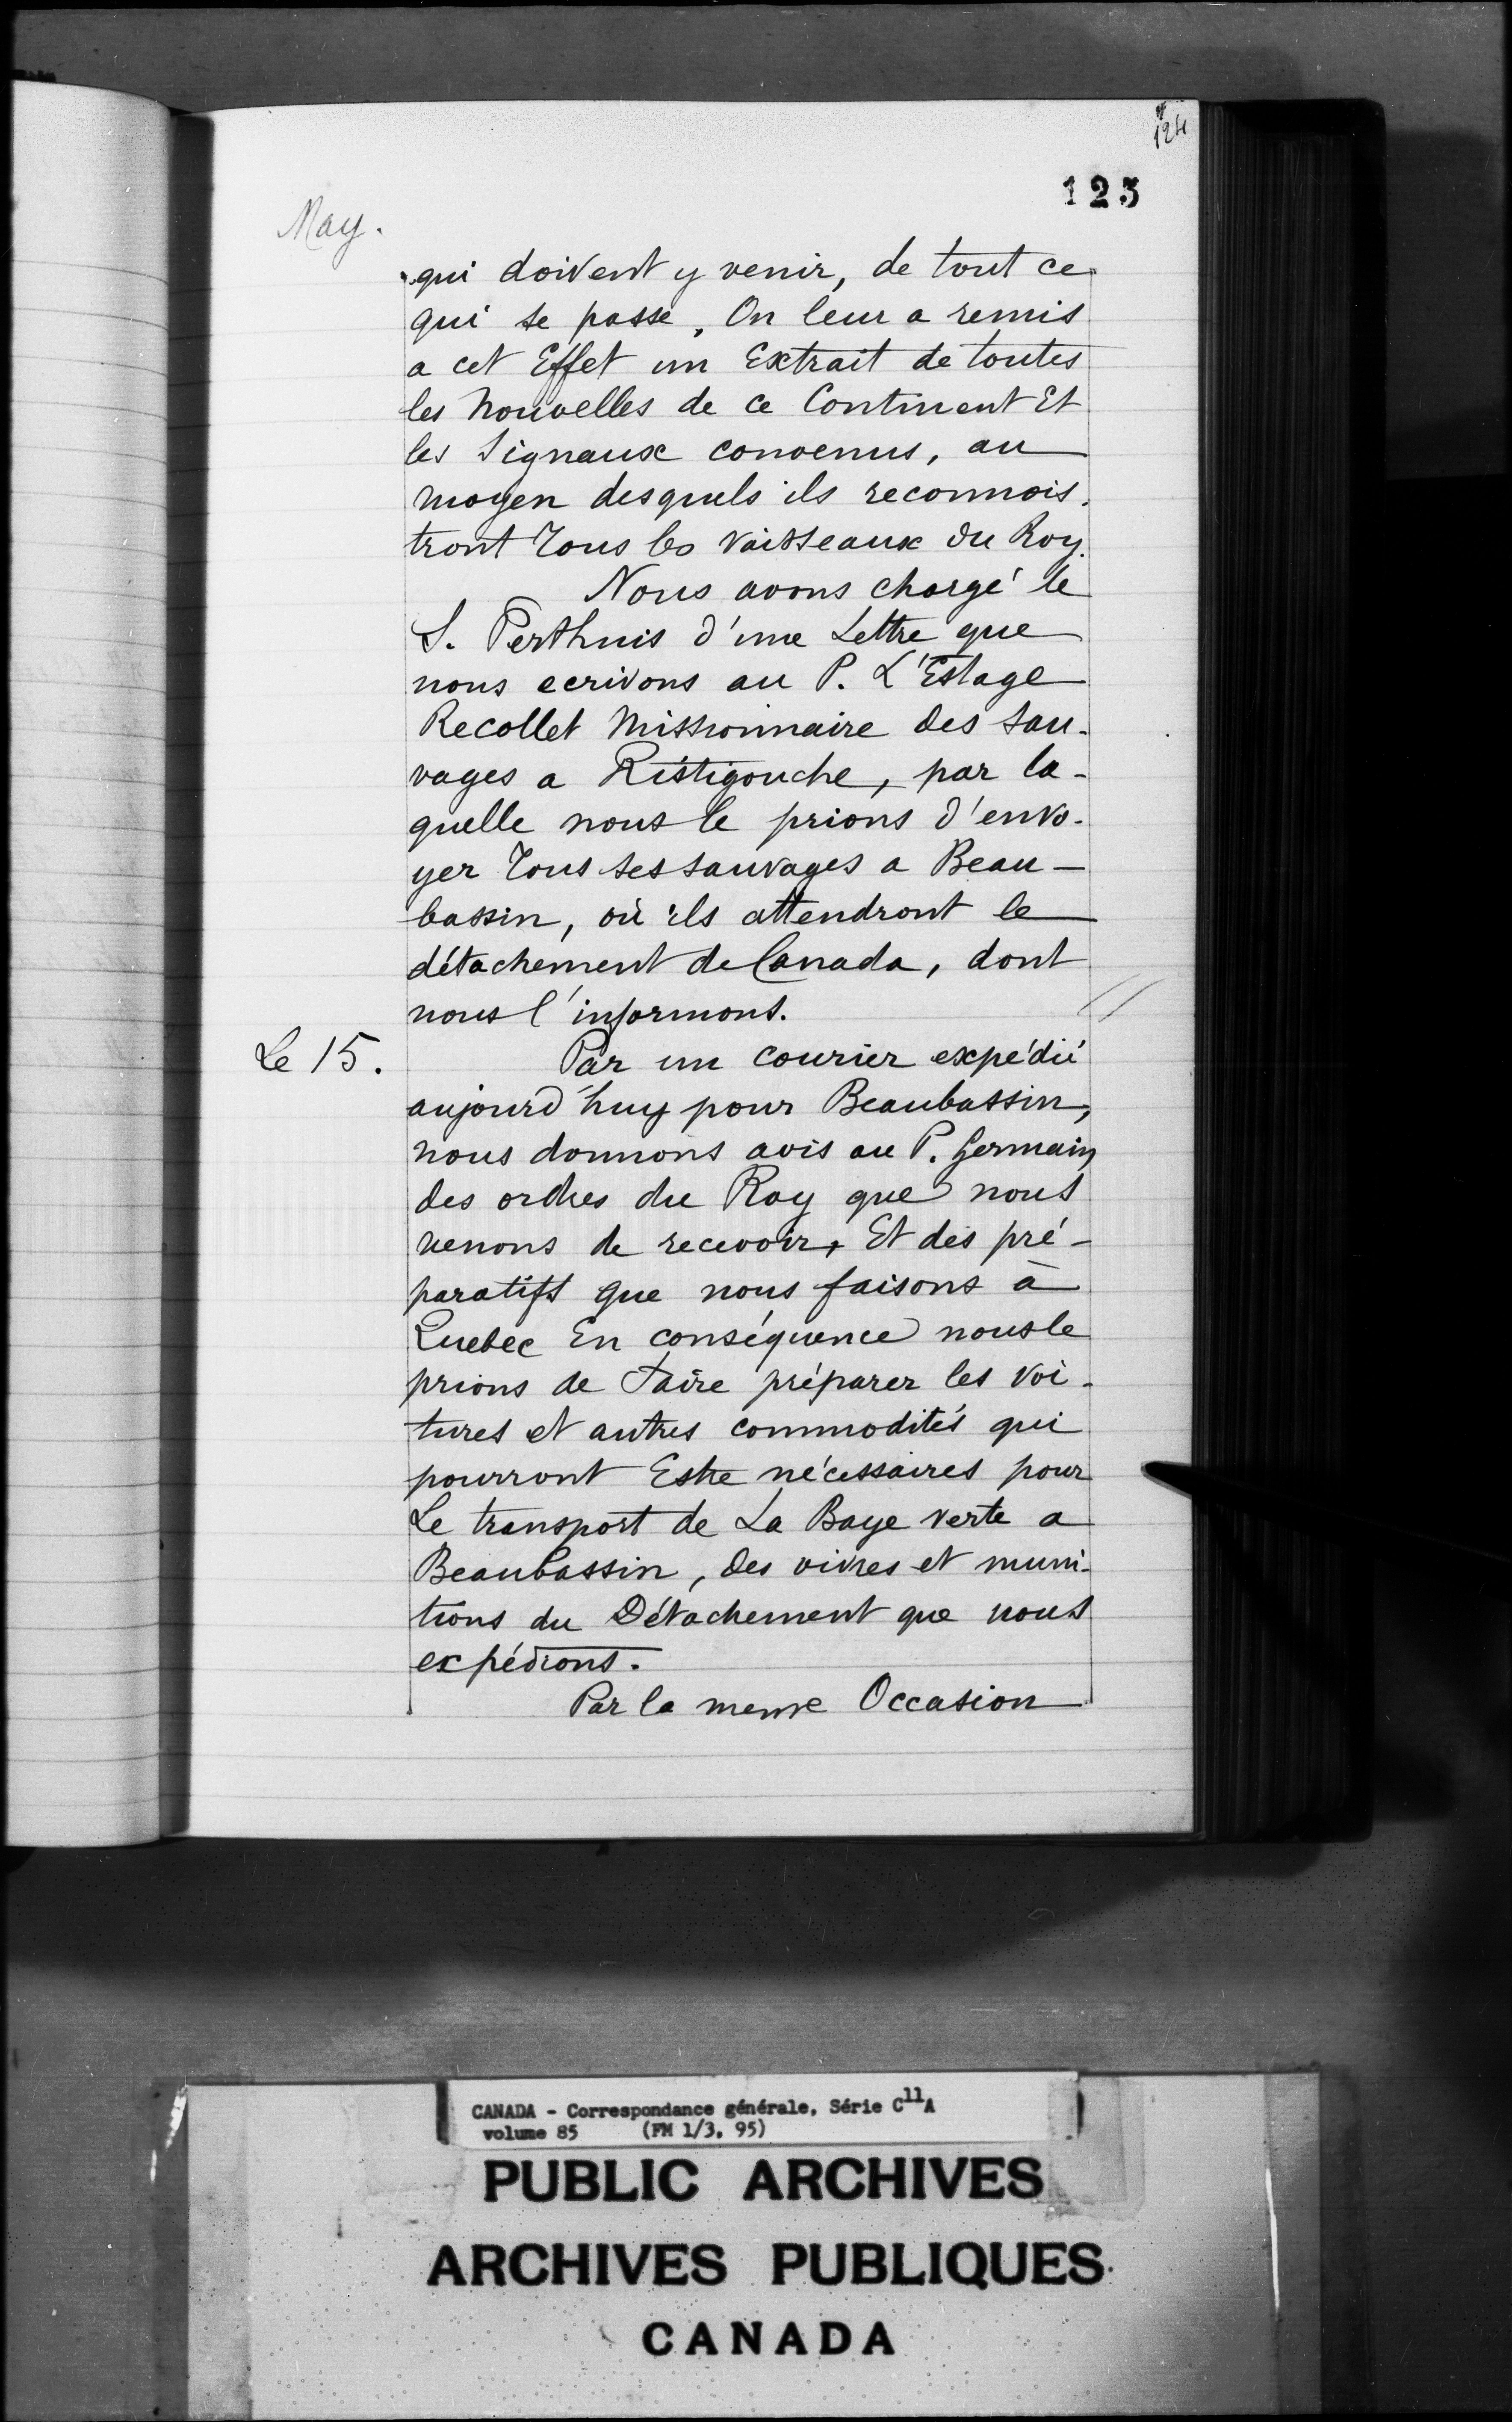 124
123
May.
qui doivent y venir, de tout ce
qui se passe, On leur a remis
a cet Effet un Extrait de toutes
les nouvelles de ce Continent Et
les Signaux convenus, au
moyen desquels ils reconnois.
tront Tous les vaisseaux du Roy.
Nous avons chargé le
S. Perthuis d'une Lettre que
nous ecrivons au P. L'Estage
Recollet Missionnaire des sau.
vages a Ristigouche, par la-
quelle nous le prions d'envo.
yer Tous ses sauvages a Beau-
bassin, où ils attendront le
détachement de Canada, dont
nous l'informons.
Le 15.
Par un courier expédié
aujourd'huy pour Beaubassin,
nous donnons avis au P. Germain
des ordres du Roy que nous
venons de recevoir, Et des pré-
paratifs que nous faisons à
Quebec En conséquence nous le
prions de faire préparer les voi-
tures et autres commodités qui
pourront Estre nécessaires pour
Le transport de La Baye verte a
Beaubassin, des vivres et muni-
tions du Détachement que nous
expédions.
Par la mesme Occasion
CANADA - Correspondance générale, Série C11A
volume 85 (FM 1/3. 95)
PUBLIC ARCHIVES
ARCHIVES PUBLIQUES
CANADA